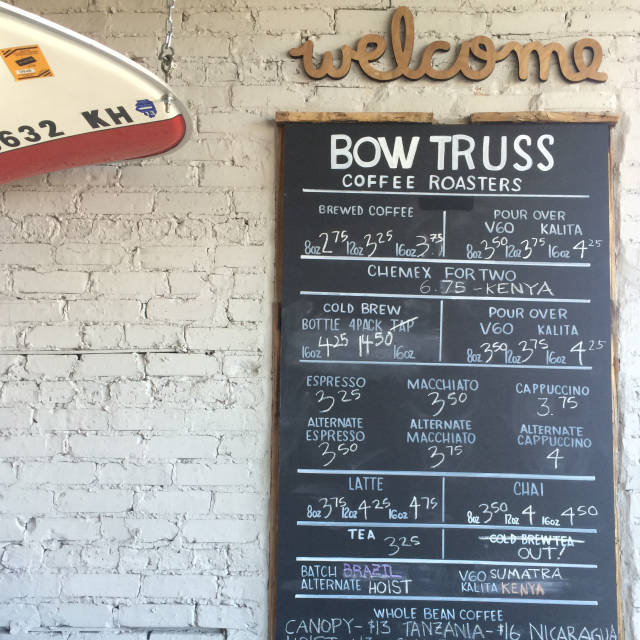 welcome
632 KH
BOW TRUSS
COFFEE ROASTERS
BREWED COFFEE
8oz 2.75 12oz 3.25 16oz 3.75
POUR OVER
V60 KALITA
8oz 3.50 12oz 3.75 16oz 4.25
CHEMEX FOR TWO
6.75 - KENYA
COLD BREW
BOTTLE 4PACK TAP
16oz 4.25 14.50 16oz
POUR OVER
V60 KALITA
8oz 3.50 12oz 3.75 16oz 4.25
ESPRESSO MACCHIATO CAPPUCCINO
3.25 3.50 3.75
ALTERNATE ALTERNATE ALTERNATE
ESPRESSO MACCHIATO CAPPUCCINO
3.50 3.75 4
LATTE
8oz 3.75 12oz 4.25 16oz 4.75
CHAI
8oz 3.50 12oz 4 16oz 4.50
TEA 3.25
COLD BREW TEA
OUT!
BATCH BRAZIL
ALTERNATE HOIST
V60 SUMATRA
KALITA KENYA
WHOLE BEAN COFFEE
CANOPY - $13 TANZANIA - $16 NICARAGUA